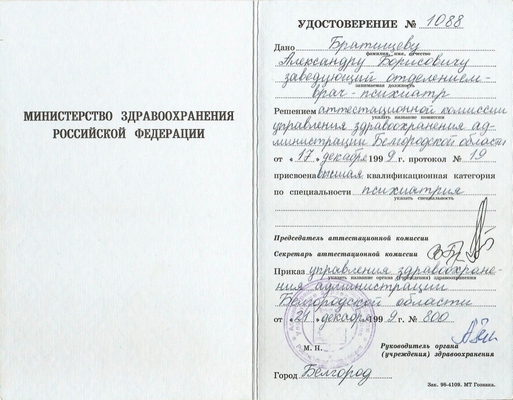 МИНИСТЕРСТВО ЗДРАВООХРАНЕНИЯ
РОССИЙСКОЙ ФЕДЕРАЦИИ
УДОСТОВЕРЕНИЕ № 1088
Дано Братищеву
фамилия, имя, отчество
Александру Борисовичу
заведующий отделением-
занимаемая должность
врач-психиатр
Решением аттестационной комиссии
указать название комиссии
управления здравоохранения ад-
министрации Белгородской области
от «17» декабря 1999 г. протокол № 19
присвоена высшая квалификационная категория
по специальности психиатрия
указать специальность
Председатель аттестационной комиссии
Секретарь аттестационной комиссии
Приказ управления здравоохране-
указать название органа (учреждения) здравоохранения
ния администрации
Белгородской области
от «21» декабря 1999 г. № 800
М. П.
Руководитель органа
(учреждения) здравоохранения
Город Белгород
Зак. 98-4109. МТ Гознака.